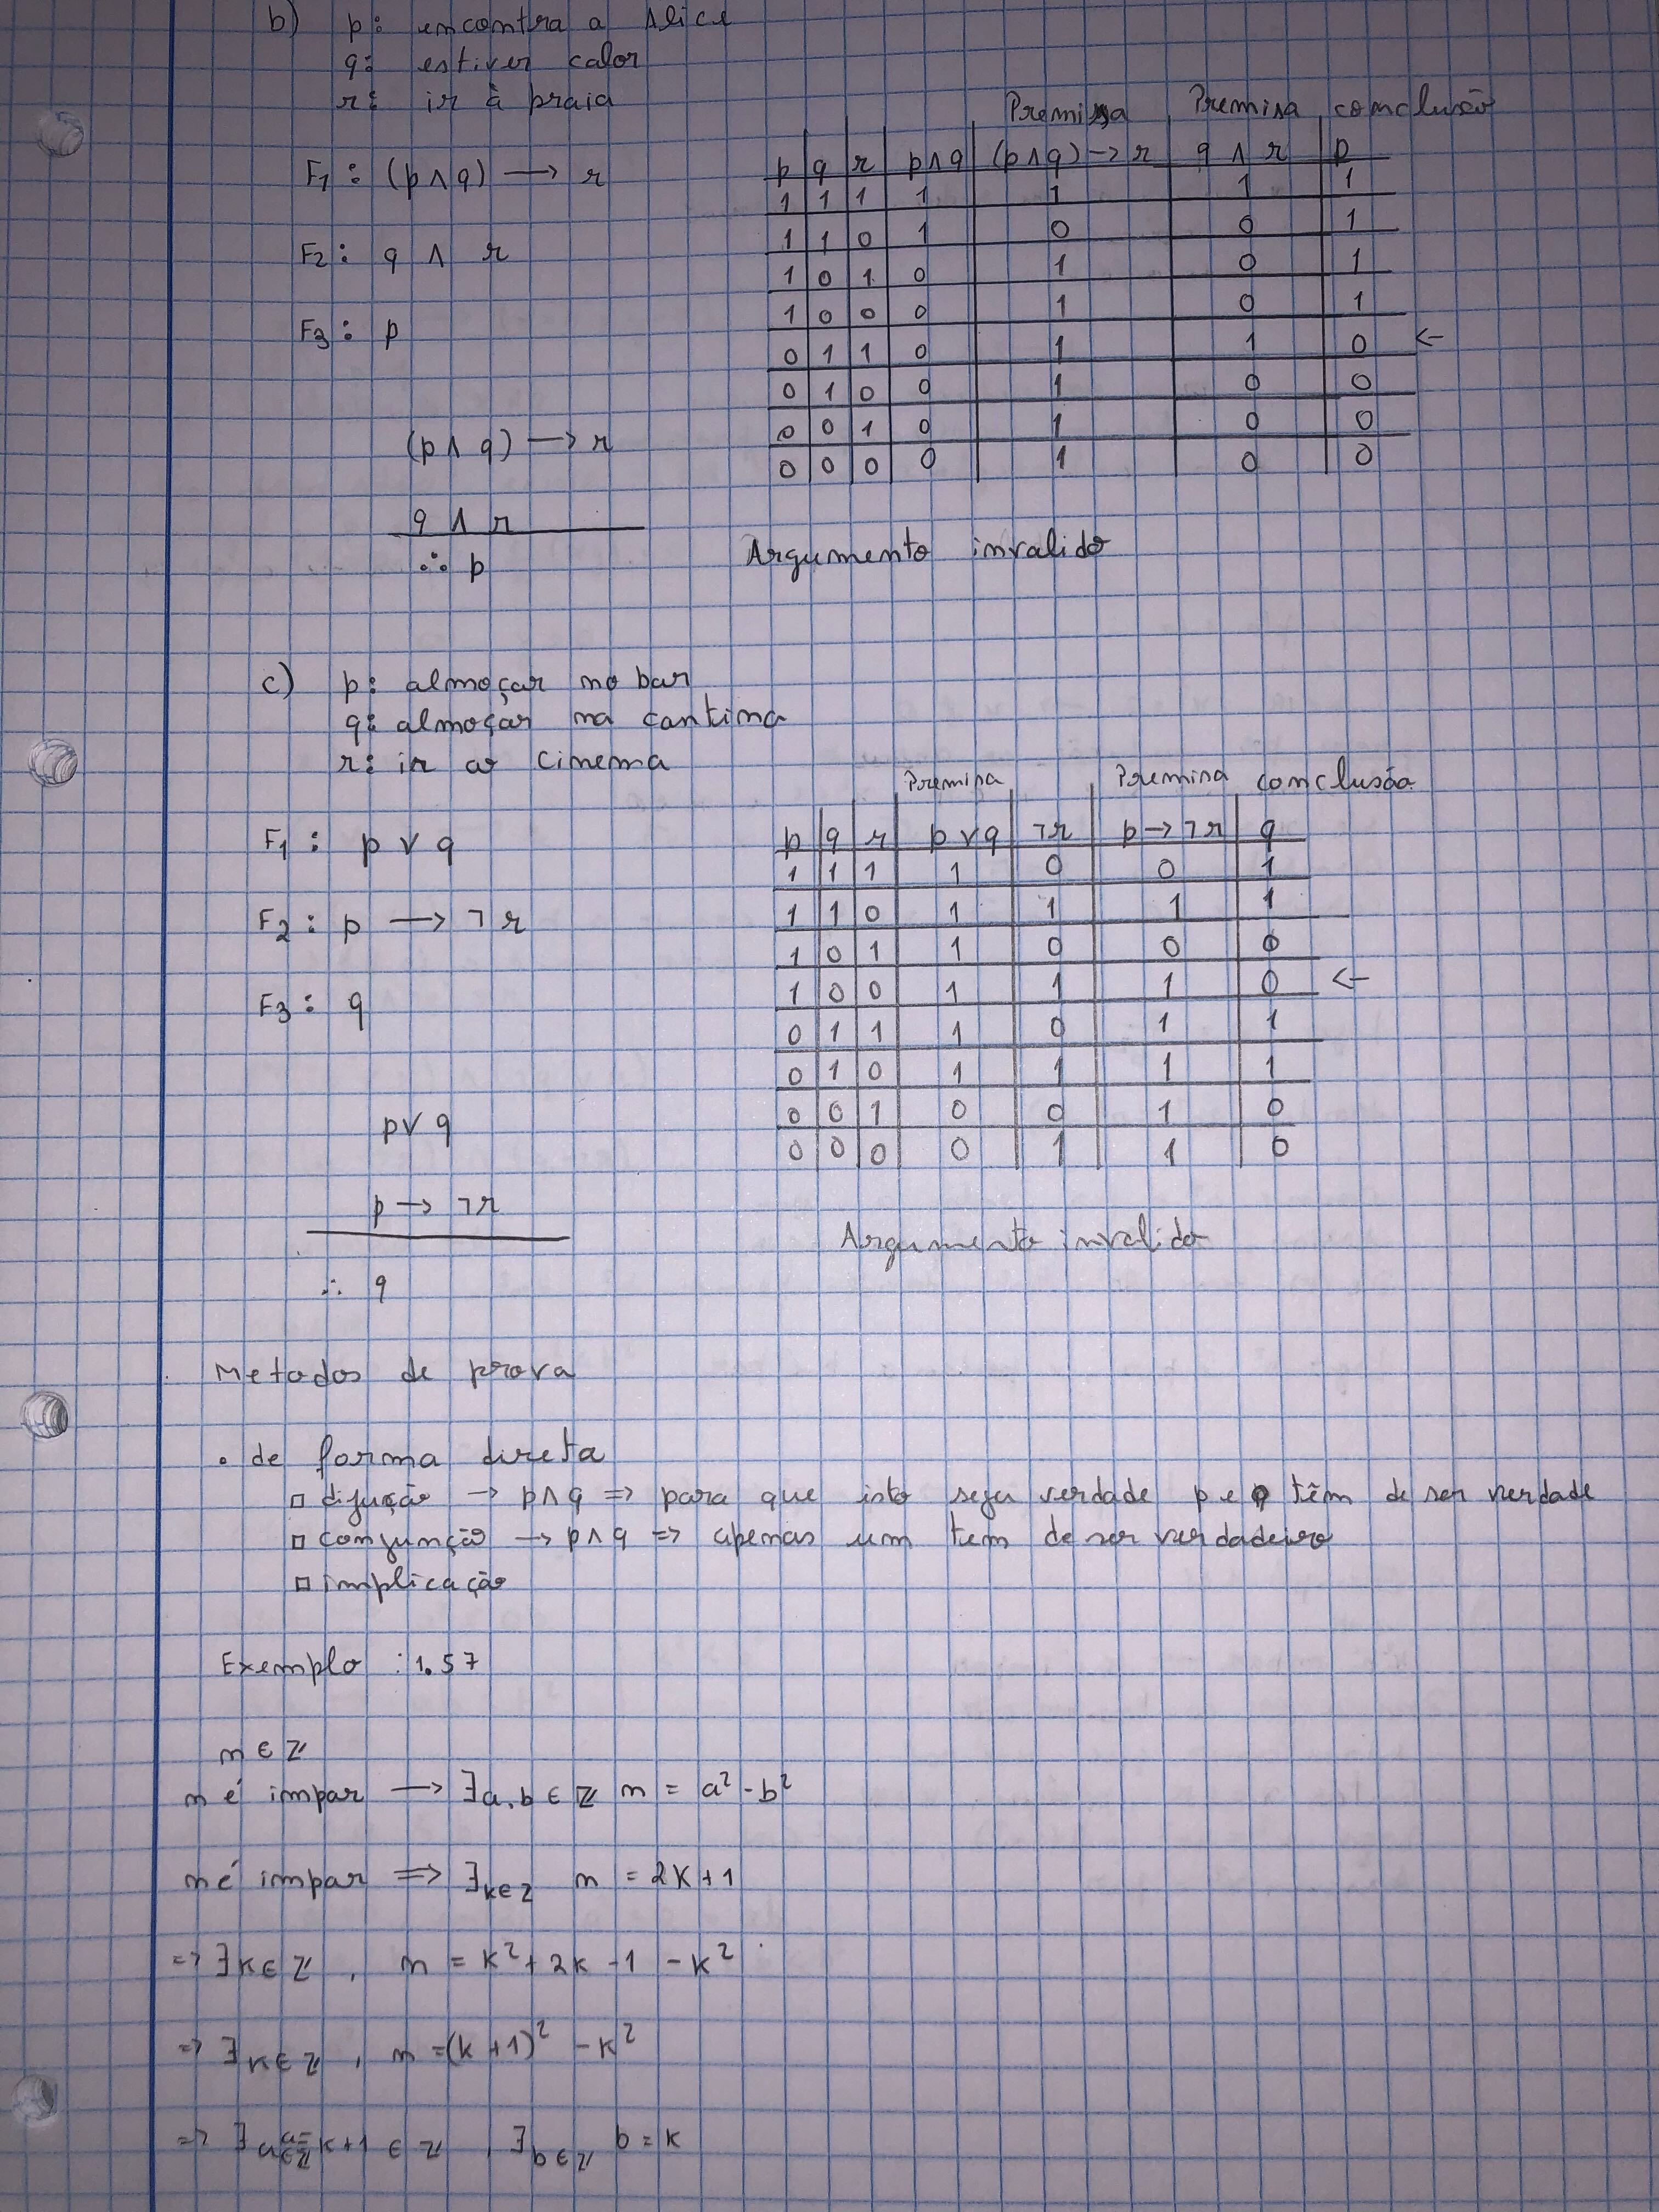 b) p: encontra a Alice
q: estiver calor
r: ir à praia
F1: (p ∧ q) → r
F2: q ∧ r
F3: p
(p ∧ q) → r
q ∧ r
∴ p
Premissa Premissa conclusão
p q r p∧q (p∧q)→r q ∧ r p
1 1 1 1 1 1 1
1 1 0 1 0 0 1
1 0 1 0 1 0 1
1 0 0 0 1 0 1
0 1 1 0 1 1 0 ←
0 1 0 0 1 0 0
0 0 1 0 1 0 0
0 0 0 0 1 0 0
Argumento invalido
c) p: almoçar no bar
q: almoçar na cantina
r: ir ao cinema
F1: p ∨ q
F2: p → ¬r
F3: q
p∨q
p → ¬r
∴ q
Premissa Premissa conclusão
p q r p∨q ¬r p→¬r q
1 1 1 1 0 0 1
1 1 0 1 1 1 1
1 0 1 1 0 0 0
1 0 0 1 1 1 0 ←
0 1 1 1 0 1 1
0 1 0 1 1 1 1
0 0 1 0 0 1 0
0 0 0 0 1 1 0
Argumento invalido
Metodos de prova
• de forma direta
□ difução → p∧q => para que isto seja verdade p e q têm de ser verdade
□ conjunção → p∧q => apenas um tem de ser verdadeiro
□ implicação
Exemplo : 1.57
n ∈ ℤ
n é impar → ∃a,b ∈ ℤ n = a² - b²
n é impar => ∃k∈ℤ n = 2k+1
=> ∃k∈ℤ , n = k² + 2k -1 - k²
=> ∃k∈ℤ , n = (k+1)² - k²
=> ∃a∈ℤ a=k+1 ∈ ℤ , ∃b∈ℤ b = k